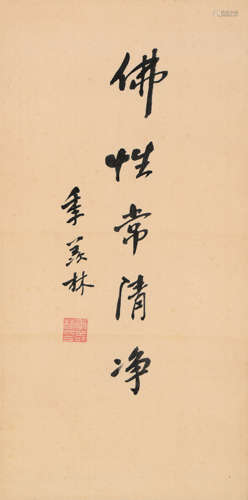 佛性常清净
季羡林